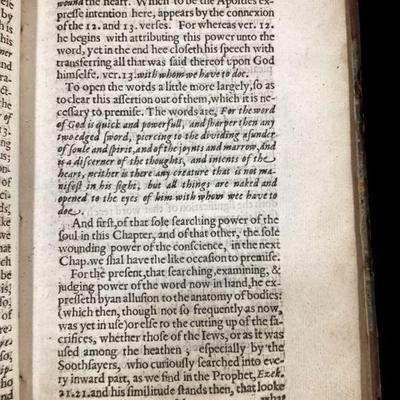 wound the heart. Which to be the Apostles ex-
presse intention here, appears by the connexion
of the 12. and 13. verses. For whereas ver. 12.
he begins with attributing this power unto the
word, yet in the end hee closeth his speech with
transferring all that was said thereof upon God
himselfe. ver. 13. with whom we have to doe.
To open the words a little more largely, so as
to clear this assertion out of them, which it is ne-
cessary to premise. The words are, For the word
of God is quick and powerfull, and sharper then any
two edged sword, piercing to the dividing asunder
of soule and spirit, and of the joynts and marrow, and
is a discerner of the thoughts, and intents of the
heart, neither is there any creature that is not ma-
nifest in his sight, but all things are naked and
opened to the eyes of him with whom wee have to
doe.
And first, of that sole searching power of the
soul in this Chapter, and of that other, the sole
wounding power of the conscience, in the next
Chap. we shal have the like occasion to premise.
For the present, that searching, examining, &
judging power of the word now in hand, he ex-
presseth by an allusion to the anatomy of bodies:
(which then, though not so frequently as now,
was yet in use) or else to the cutting up of the sa-
crifices, whether those of the Iews, or as it was
used among the heathen; especially by the
Soothsayers, who curiously searched into eve-
ry inward part, as we find in the Prophet, Ezek.
21. 21. and his similitude stands then, that looke